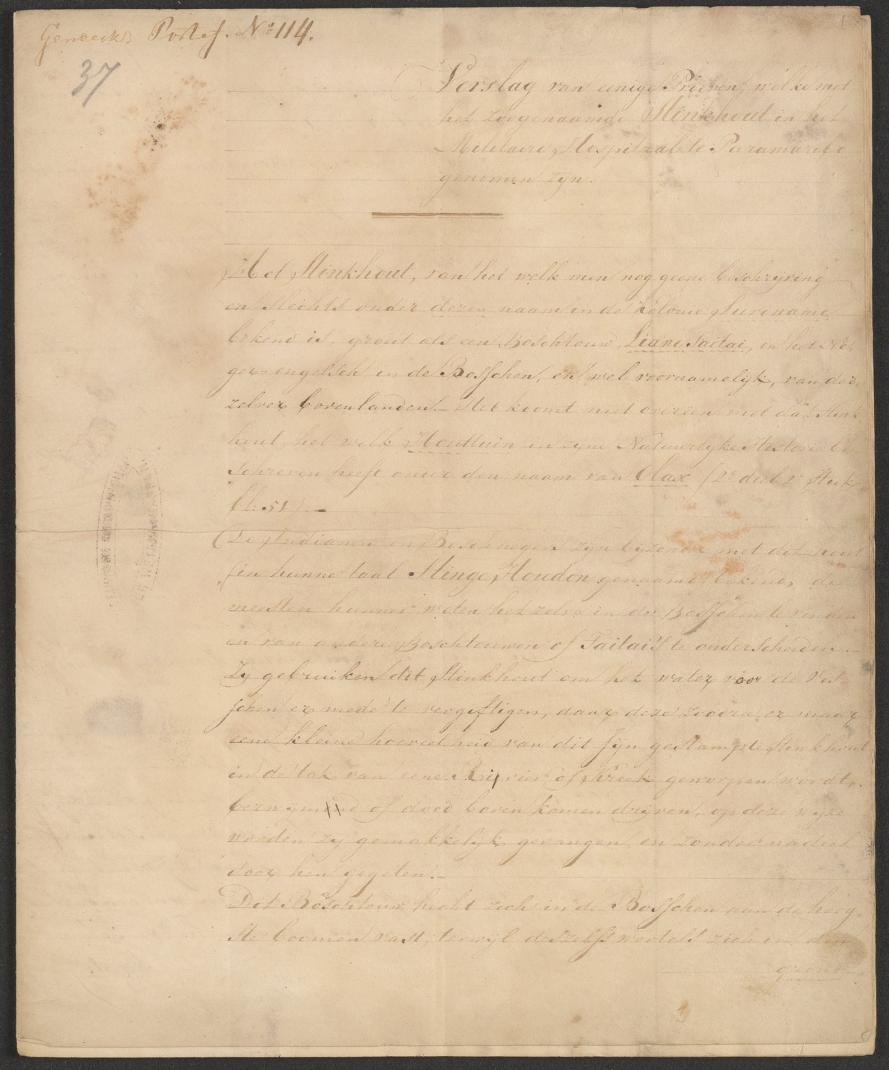 Geneesk. Portef. Nº 114.
37
Verslag van eenige Proeven, welke met
het zoogenaamde Stinkhout in het
Militaire Hospitaal te Paramaribo
genomen zyn.
Het Stinkhout, van het welk men nog geene beschryving
en slechts onder dezen naam in de Kolonie Suriname
bekend is, groeit als een Boschtouw, Liane Taitai, in het
in de Bosschen, en wel voornamelyk, van der
zelver bovenlanden. Het komt niet overeen met dat Stink
hout, het welk Houttuin in zyne Natuurlyke Historie be
schreven heeft onder den naam van Olax (2e deel 2e Stuk
bl. 51). —
De Indianen en Boschnegers zyn byzonder met dit hout
(in hunne taal Stinge Houdon genaamd) bekend, de
meesten hunner weten hetzelve in de Bosschen te vinden
en van andere Boschtouwen of Taitais te onderscheiden. —
Zy gebruiken dit Stinkhout om het water voor de Vis
schen er mede te vergiftigen, daar deze zoodra er maar
eene kleine hoeveelheid van dit fyn gestampte Stinkhout
in de tak van eene Rivier of Kreek geworpen wordt,
of dood boven komen dryven, op deze wyze
worden zy gemakkelyk gevangen, en zonder nadeel
door hen gegeten. —
Dit Boschtouw hecht zich in de Bosschen aan de hoog
ste boomen vast, terwyl deszelfs wortels zich in den
grond